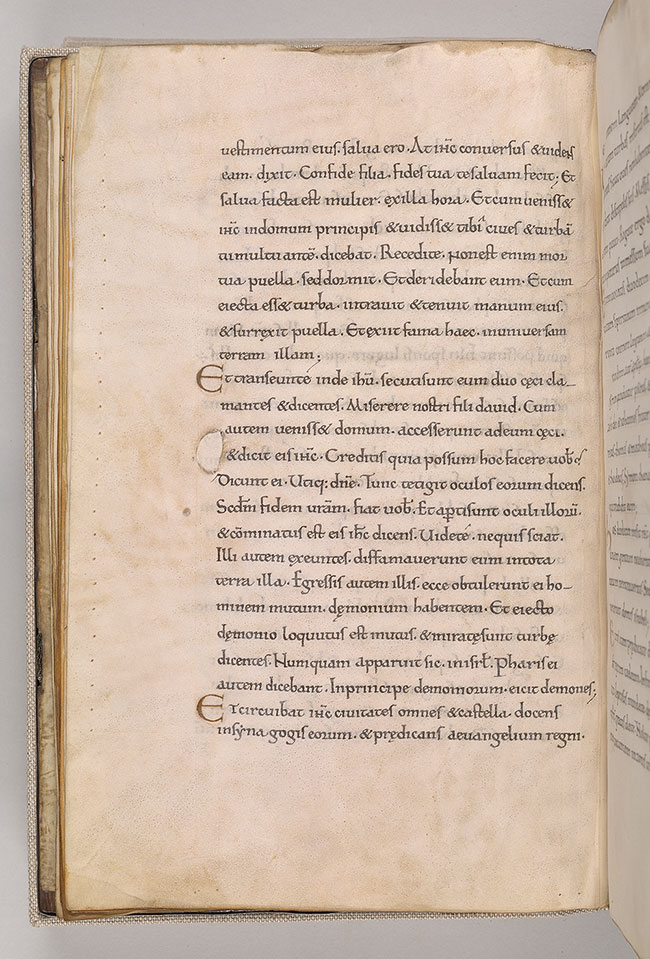 uestimentum eius. salua ero. At ihc conuersus &uidens
eam. dixit. Confide filia. fides tua tesaluam fecit; Et
salua facta est mulier. exilla hora. Etcum ueniss&
ihc indomum principis &uidiss& tibicines &turbā
tumultuantē. dicebat. Recedite. Nonest enim mor
tua puella. seddormit. Etderidebant eum. Etcum
eiecta ess& turba. intrauit &tenuit manum eius.
&surrexit puella. Etexiit fama haec. inuniuersam
terram illam;
Et transeunte inde ihū. secutisunt eum duo cęci cla–
mantes &dicentes. Miserere nostri fili dauid. Cum
autem ueniss& domum. accesserunt adeum cęci.
&dicit eis ihc. Creditis quia possum hoc facere uobis
Dicunt ei. Utiq; dne. Tunc tetigit oculos eorum dicens.
Scdm fidem urām. fiat uob. Et aptisunt oculi illorū.
&cōminatus est eis ihc dicens. Uidete. nequis sciat.
Illi autem exeuntes. diffamauerunt eum intota
terra illa. Egressis autem illis. ecce obtulerunt ei ho–
minem mutum. dęmonium habentem. Et eiecto
dęmonio loquutus est mutus. &miratęsunt turbę
dicentes. Numquam apparuit sic. inisrł. Pharisei
autem dicebant. Inprincipe demoniorum. eicit demones;
Et circuibat ihc ciuitates omnes &castella. docens
insynagogiseorum. &prędicans aeuangelium regni.